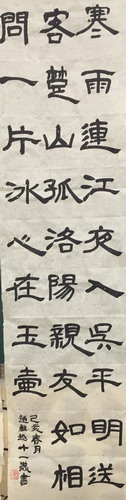 寒雨連江夜入吳平明送
客楚山孤洛陽親友如相
問一片冰心在玉壺
己亥春月
十一歲書